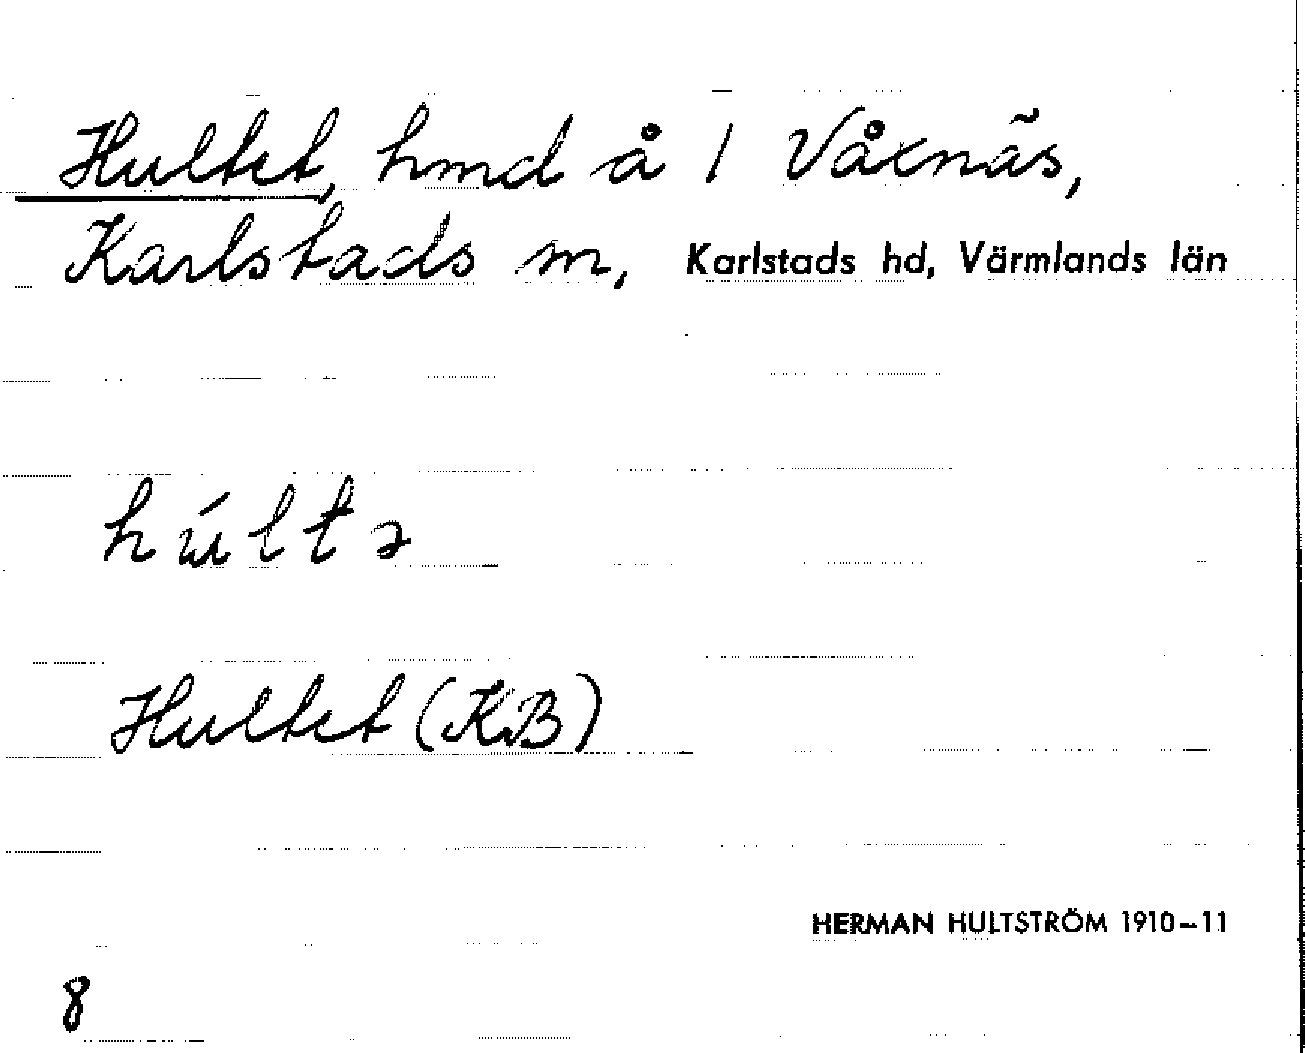 Hultet, hmd å 1 Våxnäs,
Karlstads m, Karlstads hd, Värmlands län
húltə
Hultet (KB)
HERMAN HULTSTRÖM 1910-11
8